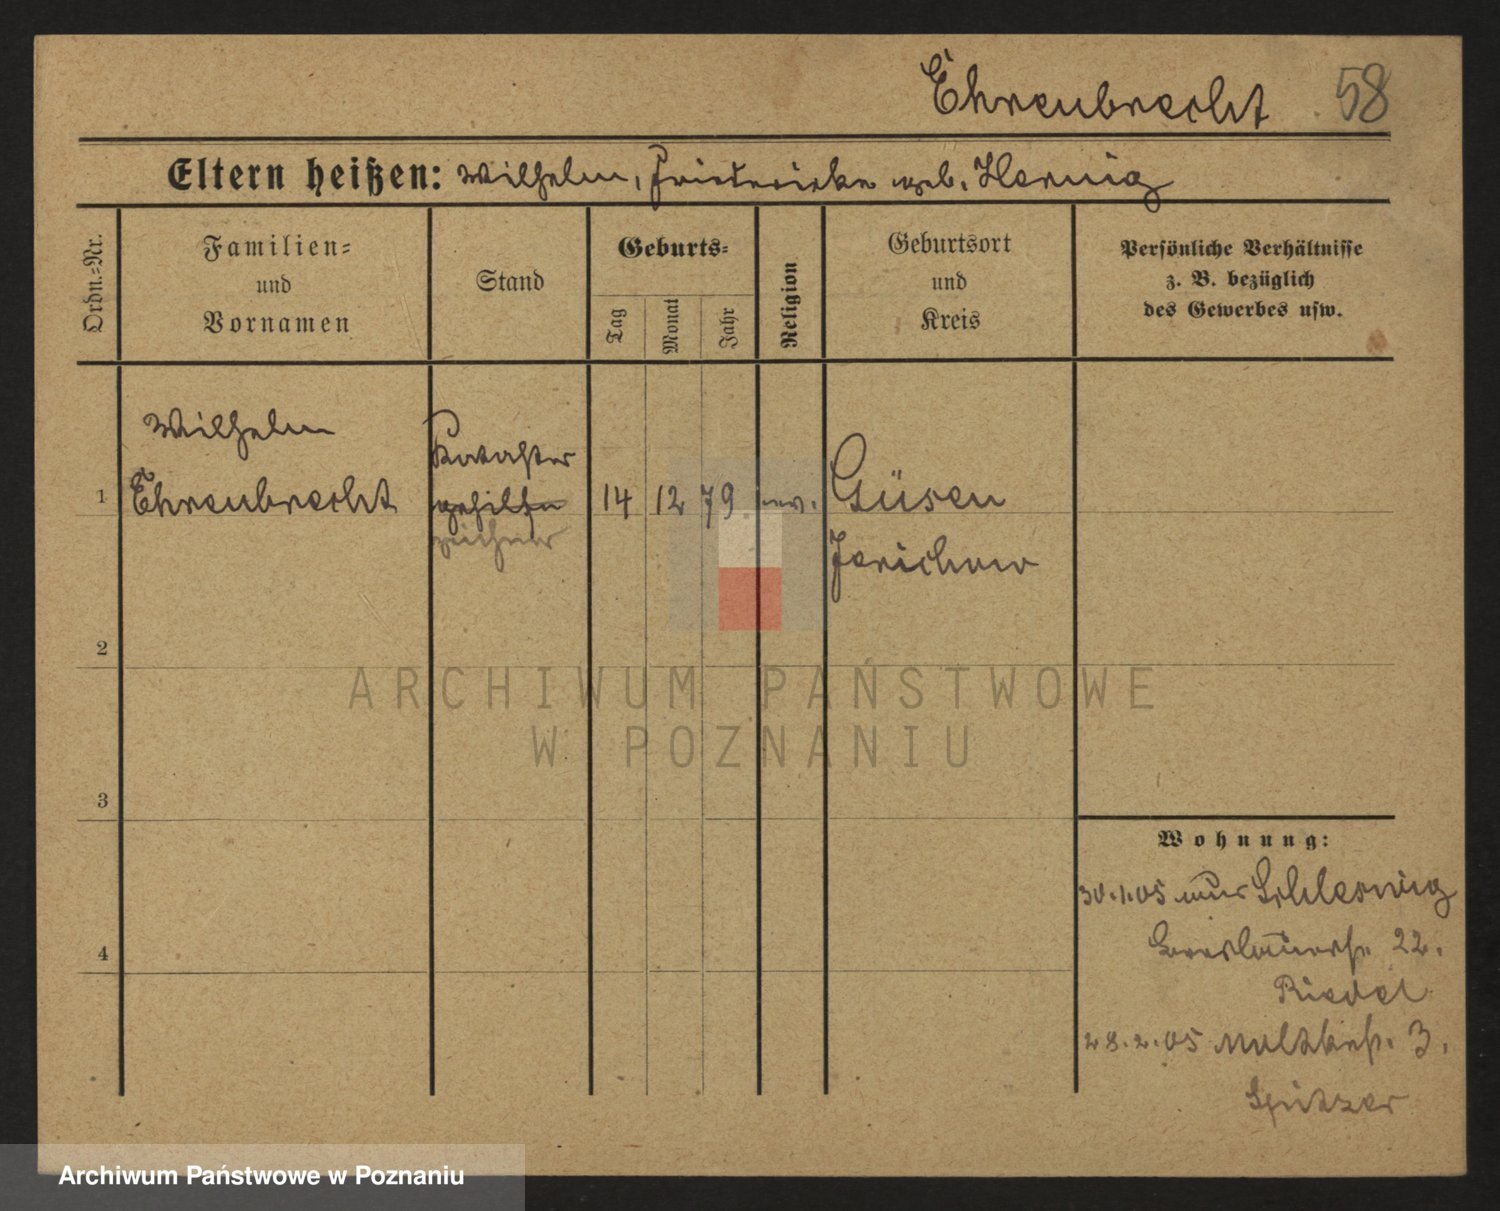 Ehrenbrecht 58
Eltern heißen: Wilhelm, Friederieke geb. Hennig
Ordn.-Nr.
Familien-
und
Vornamen
Stand
Geburts-
Tag
Monat
Jahr
Religion
Geburtsort
und
Kreis
Persönliche Verhältnisse
z. B. bezüglich
des Gewerbes usw.
1
Wilhelm
Ehrenbrecht
Kataster
gehilfe
zeichner
14 12 79. ev.
Güsen
Jerichow
2
3
4
Wohnung:
30.1.05 aus Schleswig
Breslauerstr. 22.
Riedel
28.2.05 Moltkestr. 3.
Spitzer
ARCHIWUM PAŃSTWOWE
W POZNANIU
Archiwum Państwowe w Poznaniu